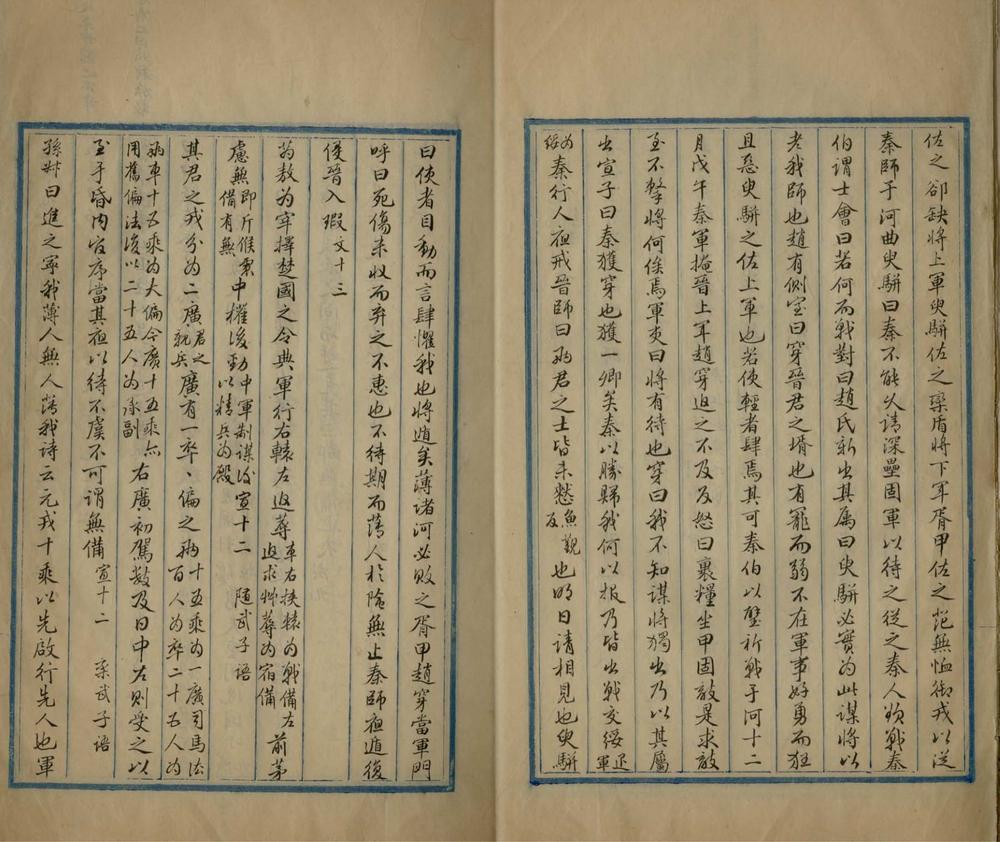 佐之卻缺將上軍臾駢佐之欒盾將下軍胥甲佐之范無恤御戎以從
秦師于河曲臾駢曰秦不能久請深壘固軍以待之從之秦人欲戰秦
伯謂士會曰若何而戰對曰趙氏新出其屬曰臾駢必實為此謀將以
老我師也趙有側室曰穿晉君之壻也有寵而弱不在軍事好勇而狂
且惡臾駢之佐上軍也若使輕者肆焉其可秦伯以璧祈戰于河十二
月戊午秦軍掩晉上軍趙穿追之不及反怒曰裹糧坐甲固敵是求敵
至不擊將何俟焉軍吏曰將有待也穿曰我不知謀將獨出乃以其屬
出宣子曰秦獲穿也獲一卿矣秦以勝歸我何以報乃皆出戰交綏退軍
為綏秦行人夜戒晉師曰兩君之士皆未憖魚覲反也明日請相見也臾駢
曰使者目動而言肆懼我也將遁矣薄諸河必敗之胥甲趙穿當軍門
呼曰死傷未收而弃之不惠也不待期而薄人於險無止秦師夜遁復
侵晉入瑕文十三
蒍敖為宰擇楚國之令典軍行右轅左追蓐車右挾轅為戰備左追求艸蓐為宿備前茅
慮無即斤候衆備有無中權後勁中軍制謀後以精兵為殿宣十二 隨武子語
其君之戎分為二廣君之親兵廣有一卒、偏之兩十五乘為一廣司馬法百人為卒二十五人為
兩車十五乘為大偏今廣十五乘亦用舊偏法復以二十五人為承副右廣初駕數及日中左則受之以
至于昏內官序當其夜以待不虞不可謂無備宣十二 欒武子語
孫叔曰進之寧我薄人無人薄我詩云元戎十乘以先啟行先人也軍